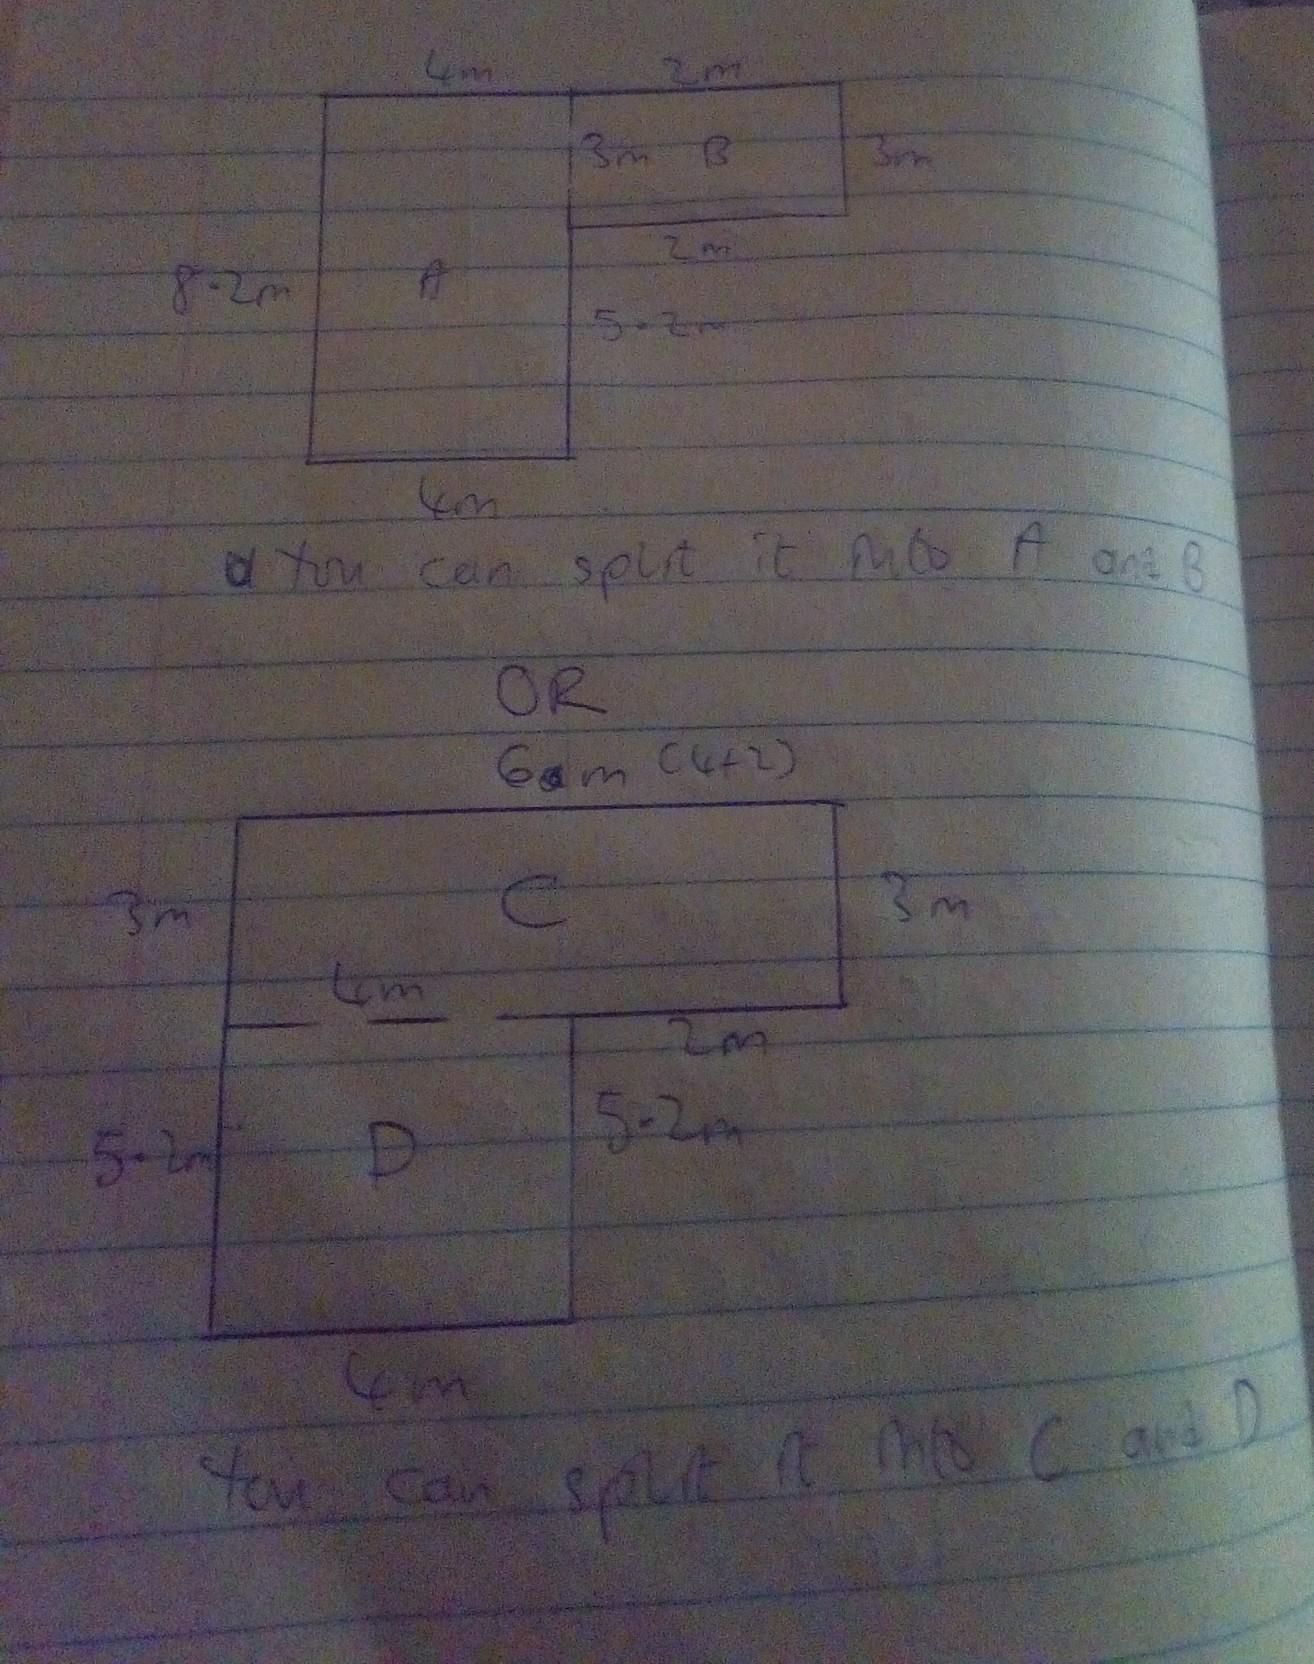 4m 2m
3m B 3m
2m
8.2m A
5.2m
4m
You can split it into A and B
OR
6m (4+2)
3m C 3m
4m
2m
5.2m D 5.2m
4m
You can split it into C and D